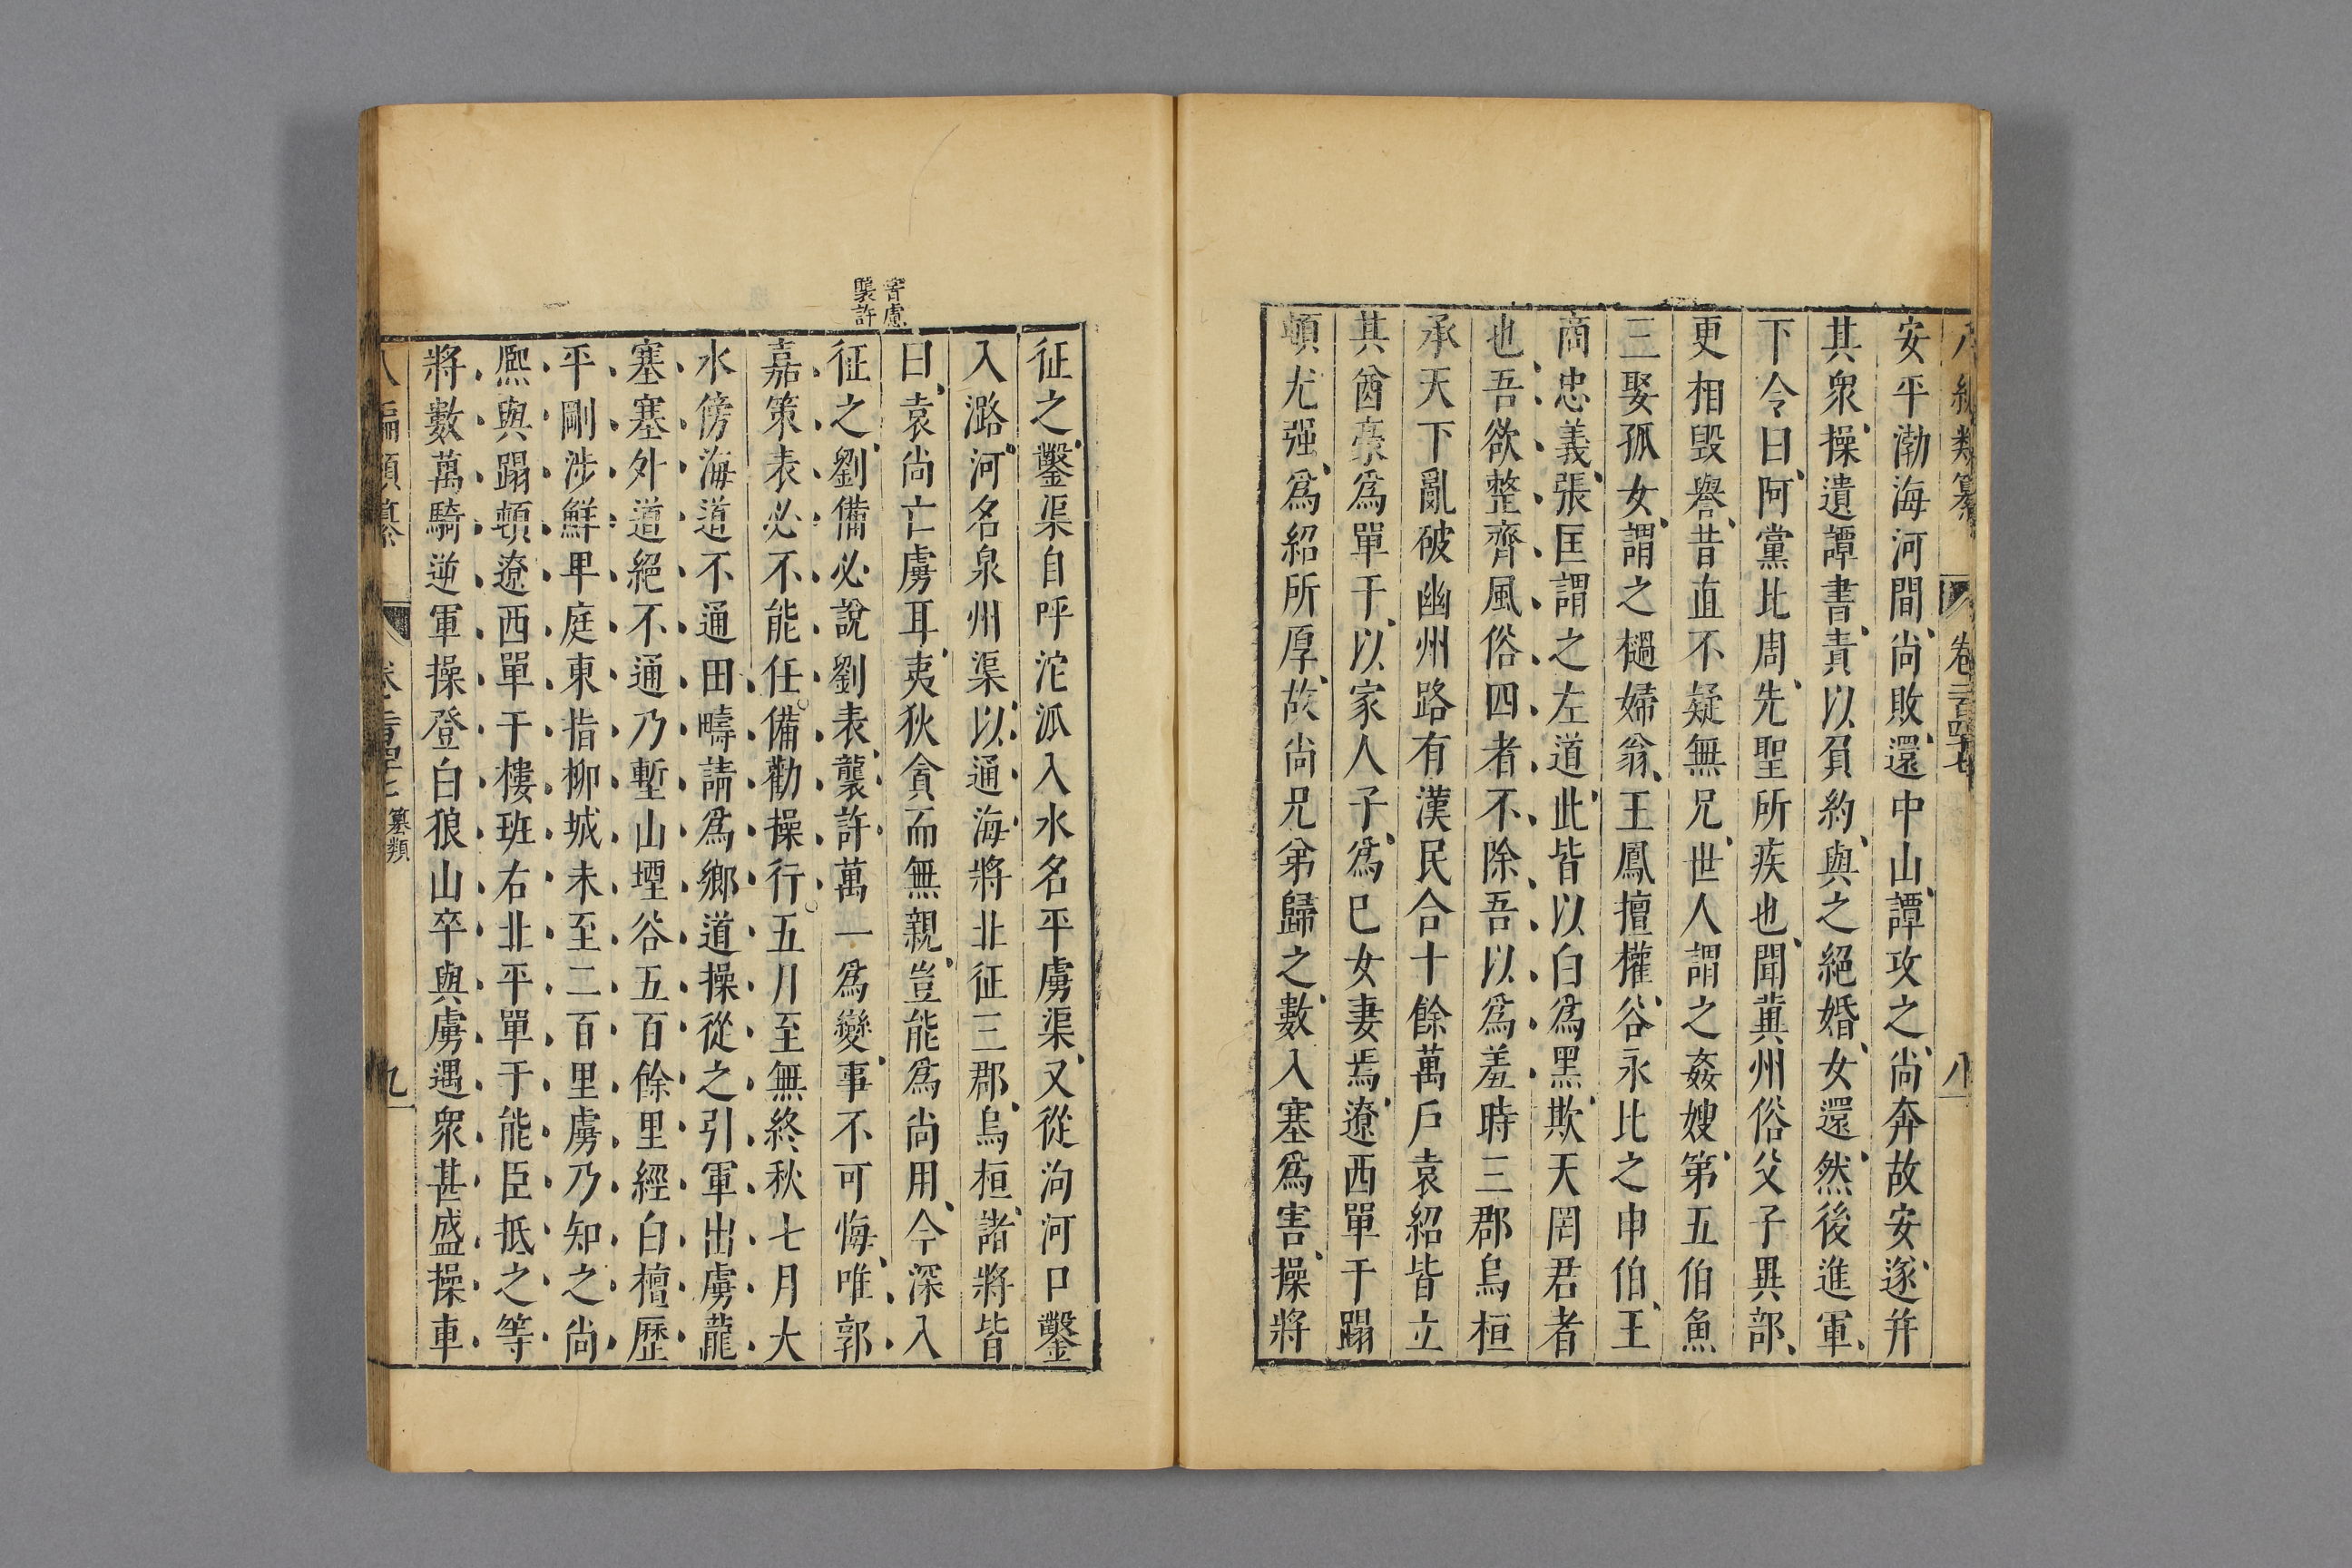 八編類纂 卷二百四十七 八
安平渤海河間尚敗還中山譚攻之尚奔故安遂并
其衆操遺譚書責以負約與之絕婚女還然後進軍
下令曰阿黨比周先聖所疾也聞冀州俗父子異部
更相毀譽昔直不疑無兄世人謂之姦嫂第五伯魚
三娶孤女謂之檛婦翁王鳳擅權谷永比之申伯王
商忠義張匡謂之左道此皆以白爲黑欺天罔君者
也吾欲整齊風俗四者不除吾以爲羞時三郡烏桓
承天下亂破幽州路有漢民合十餘萬戶袁紹皆立
其酋豪爲單于以家人子爲巳女妻焉遼西單于蹋
頓尤强爲紹所厚故尚兄弟歸之數入塞爲害操將
征之鑿渠自呼沱泒入水名平虜渠又從泃河口鑿
入潞河名泉州渠以通海將北征三郡烏桓諸將皆
曰袁尚亡虜耳夷狄貪而無親豈能爲尚用今深入
征之劉備必說劉表襲許萬一爲變事不可悔唯郭
嘉策表必不能任備勸操行五月至無終秋七月大
水傍海道不通田疇請爲鄉道操從之引軍出虜龍
塞塞外道絕不通乃塹山堙谷五百餘里經白檀歷
平剛涉鮮卑庭東指柳城未至二百里虜乃知之尚
熈與蹋頓遼西單于樓班右北平單于能臣抵之等
將數萬騎逆軍操登白狼山卒與虜遇衆甚盛操車
慮
襲許
八編類纂 卷二百四十七 纂類 九